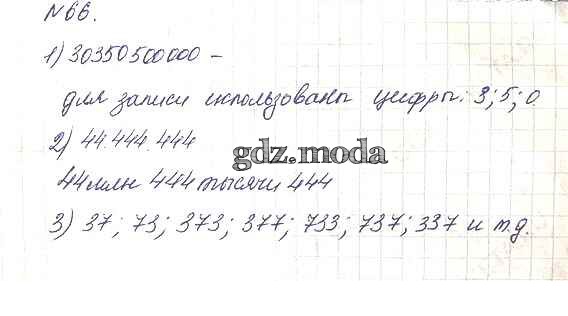 №66.
1) 30350500000 –
для записи использованы цифры: 3; 5; 0.
2) 44.444.444
gdz.moda
44 млн 444 тысячи 444
3) 37; 73; 373; 377; 733; 737; 337 и т.д.